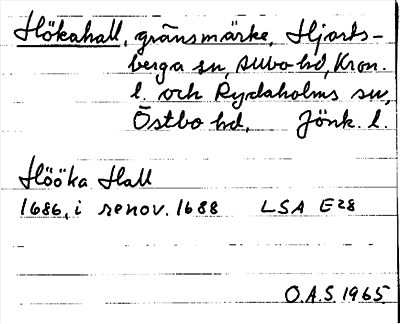 Hökahall, gränsmärke, Hjorts-
berga sn, Allbo hd, Kron.
l. och Rydaholms sn,
Östbo hd, Jönk. l.
Hööka Hall
1686, i renov. 1688 LSA E28
O.A.S. 1965